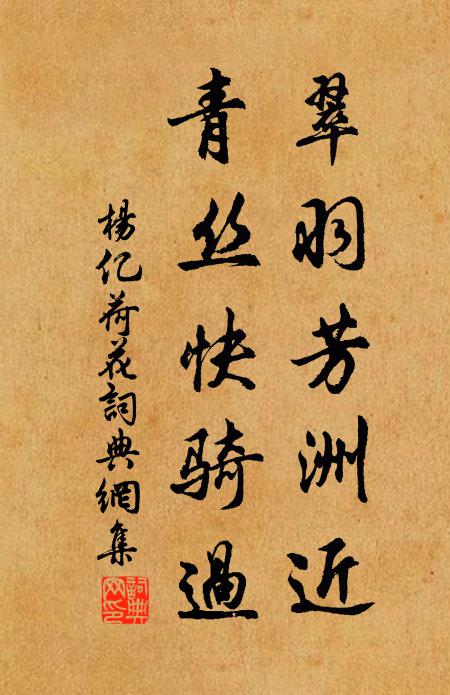 翠羽芳洲近
青丝快骑過
楊亿荷花詞典網集
詞典网印